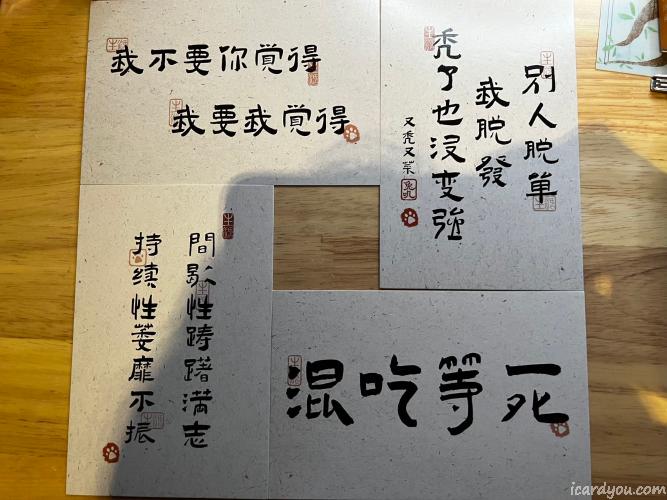 我不要你覺得
我要我覺得
别人脱单
我脱發
秃了也没变強
又秃又菜
間歇性踌躇满志
持续性萎靡不振
混吃等死
icardyou.com